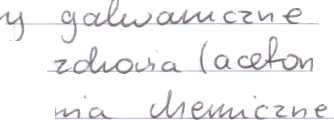 y galwaniczne
zdrowia (aceton
nia chemiczne